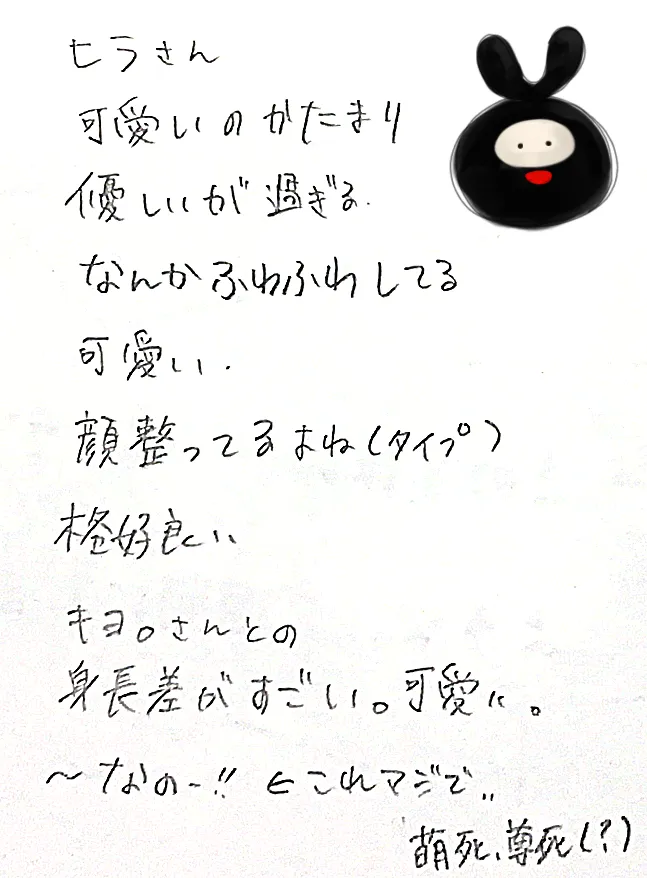 ヒラさん
可愛いのかたまり
優しいが過ぎる.
なんかふわふわしてる
可愛い.
顔整ってるよね(タイプ)
格好良い
キヨ。さんとの
身長差がすごい。可愛い。
〜なの-!! ←これマジで..
萌死、尊死(?)